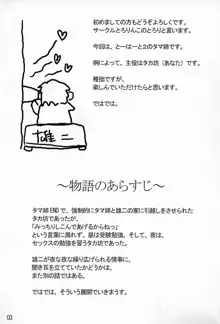 初めましての方もどうぞよろしく です。
サークルとろりんこのとろりと言います。
今回は、とーはーと2のタマ姉です。
例によって、主役はタカ坊(あなた)です。
稚拙ですが、
楽しんでいただけたらと思います。
ではでは。
雄二
〜物語のあらすじ〜
タマ姉ENDで、強制的にタマ姉と雄二の家に引越しをさせられた
タカ坊であったが、
「みっちりしこんであげるからねっ」
という言葉に違わず、昼は受験勉強、そして、夜は、
セックスの勉強を習う日々のタカ坊であった。
雄二が夜な夜な繰り広げられる情事に、
聞き耳を立てていたかどうかは、
また別の話ではある。
ではでは、そういう展開でいきまーす。
03